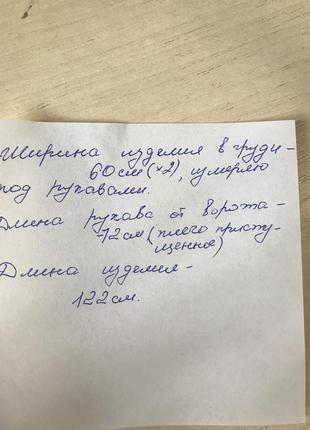 Ширина изделия в груди -
60см (×2), измеряю
под рукавами.
Длина рукава от ворота -
-72см (плечо приспу-
щенное)
Длина изделия -
122см.